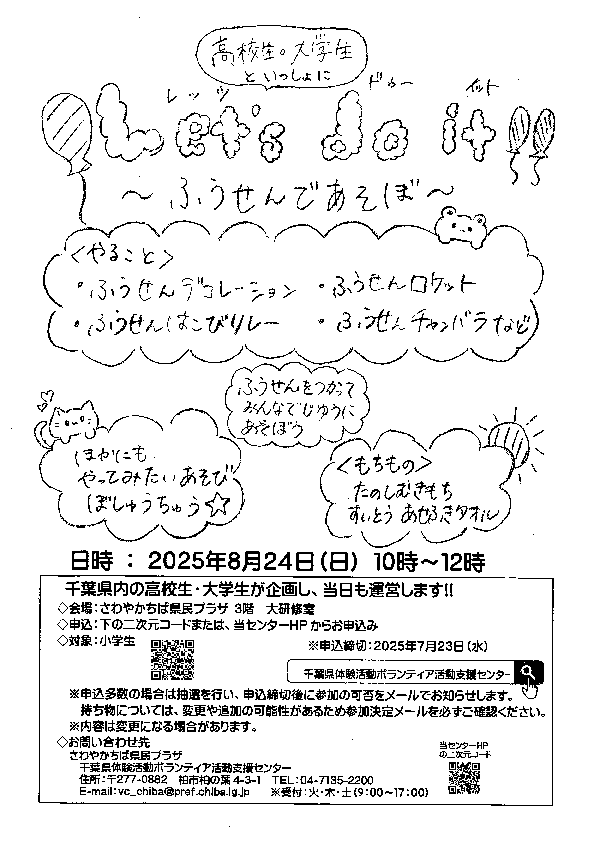 高校生。大学生
といっしょに
レッツ ドゥー イット
Let's do it!!
～ふうせんであそぼ～
＜やること＞
・ふうせんデコレーション ・ふうせんロケット
・ふうせんはこびリレー ・ふうせんチャンバラなど
ふうせんをつかって
みんなでじゆうに
あそぼう
ほかにも
やってみたいあそび
ぼしゅうちゅう☆
＜もちもの＞
たのしむきもち
すいとう あせふきタオル
日時 ： 2025年8月24日(日) 10時～12時
千葉県内の高校生・大学生が企画し、当日も運営します!!
◇会場：さわやかちば県民プラザ 3階 大研修室
◇申込：下の二次元コードまたは、当センターHPからお申込み
◇対象：小学生
※申込締切：2025年7月23日(水)
千葉県体験活動ボランティア活動支援センター
※申込多数の場合は抽選を行い、申込締切後に参加の可否をメールでお知らせします。
持ち物については、変更や追加の可能性があるため参加決定メールを必ずご確認ください。
※内容は変更になる場合があります。
◇お問い合わせ先
さわやかちば県民プラザ
千葉県体験活動ボランティア活動支援センター
住所：〒277-0882 柏市柏の葉4-3-1 TEL：04-7135-2200
E-mail：vc_chiba@pref.chiba.lg.jp ※受付：火・木・土(9：00～17：00)
当センターHP
の二次元コード